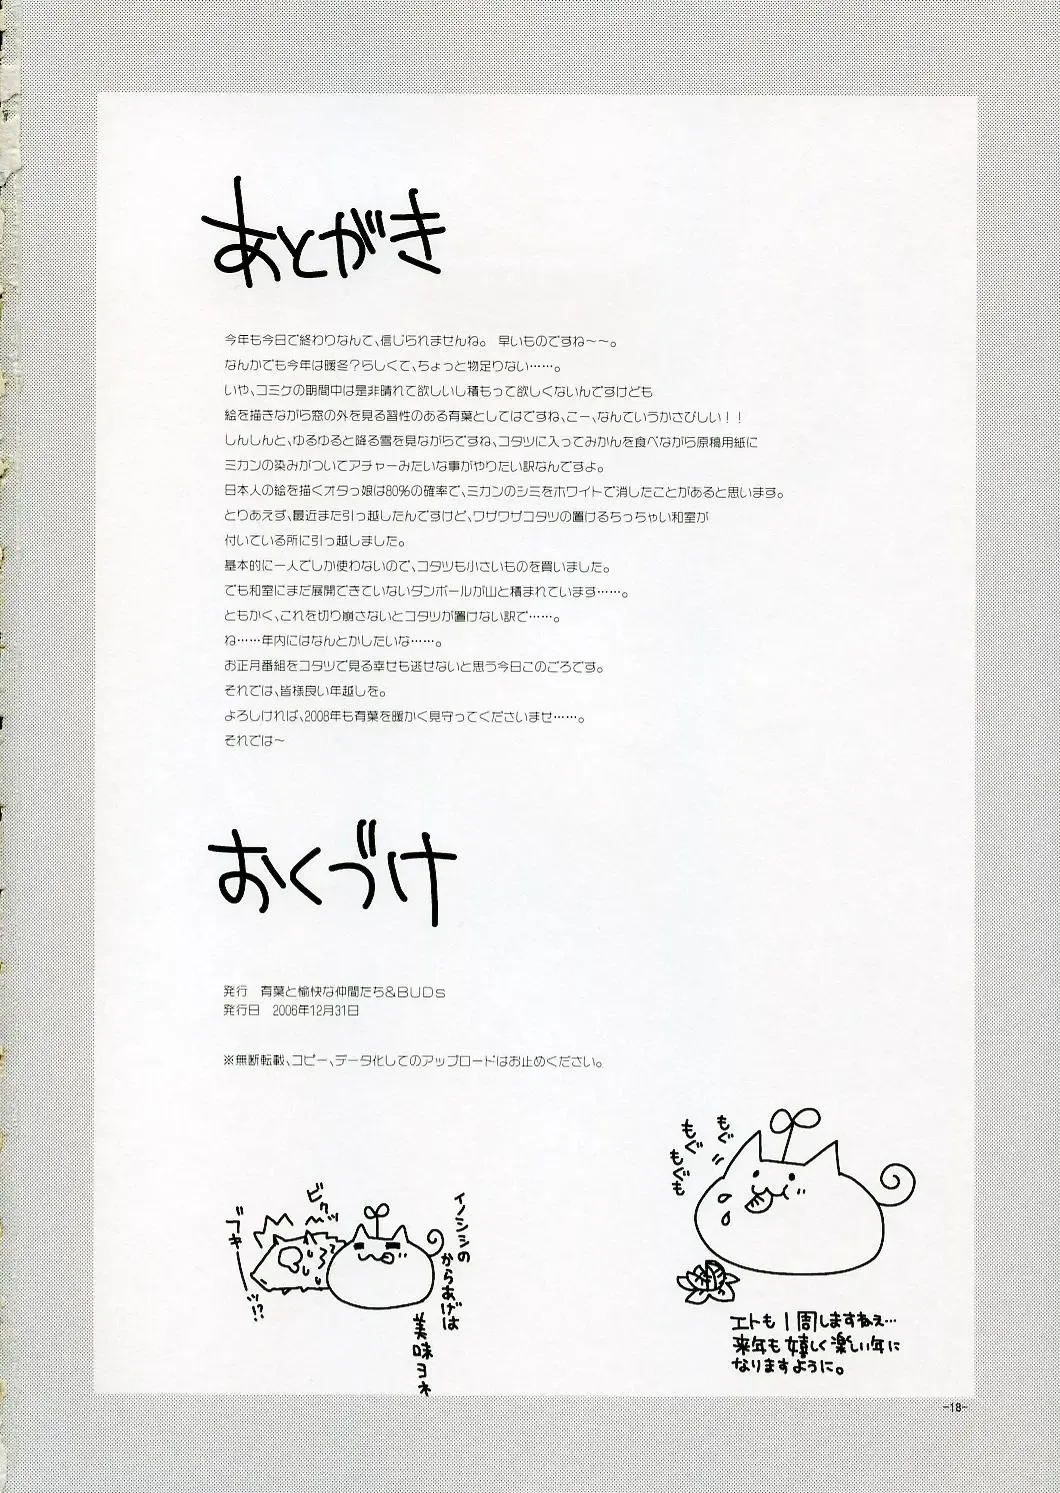 あとがき
今年も今日で終わりなんて、信じられませんね。 早いものですね～～。
なんかでも今年は暖冬?らしくて、ちょっと物足りない……。
いや、コミケの期間中は是非晴れて欲しいし積もって欲しくないんですけども
絵を描きながら窓の外を見る習性のある有葉としてはですね、こー、なんていうかさびしい！！
しんしんと、ゆるゆると降る雪を見ながらですね、コタツに入ってみかんを食べながら原稿用紙に
ミカンの染みがついてアチャーみたいな事がやりたい訳なんですよ。
日本人の絵を描くオタっ娘は80%の確率で、ミカンのシミをホワイトで消したことがあると思います。
とりあえず、最近また引っ越したんですけど、ワザワザコタツの置けるちっちゃい和室が
付いている所に引っ越しました。
基本的に一人でしか使わないので、コタツも小さいものを買いました。
でも和室にまだ展開できていないダンボールが山と積まれています……。
ともかく、これを切り崩さないとコタツが置けない訳で……。
ね……年内にはなんとかしたいな……。
お正月番組をコタツで見る幸せも逃せないと思う今日このごろです。
それでは、皆様良い年越しを。
よろしければ、2008年も有葉を暖かく見守ってくださいませ……。
それでは～
おくづけ
発行　有葉と愉快な仲間たち&BUDs
発行日　2006年12月31日
※無断転載、コピー、データ化してのアップロードはお止めください。
もぐ
もぐ
もぐも
エトも1周しますねぇ…
来年も嬉しく楽しい年に
なりますように。
イノシシの
からあげは
美味ヨネ
ビクッ
ブキーーッ!?
-18-